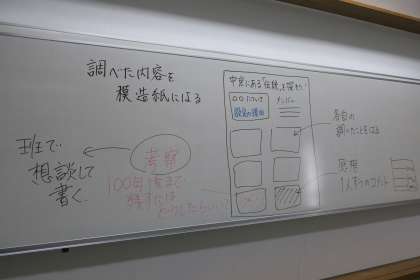 調べた内容を
模造紙にはる
班で
想談して
書く
考察
100年後まで
残すには
どうしたらいい?
中京にある「伝統」を探そう!
〇〇について
メンバー
設定の理由
各自の
調べたことをはる
感想
1人ずつのコメント